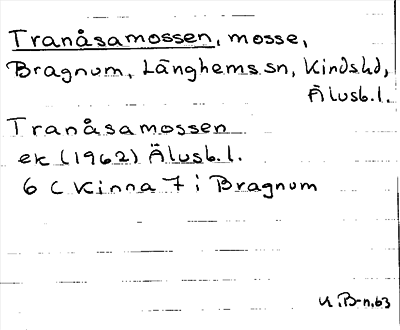 Tranåsamossen, mosse,
Bragnum, Länghems sn, Kinds hd,
Älvsb.l.
Tranåsamossen
ek (1962) Älvsb.l.
6 C Kinna 7 i Bragnum
K.B-n.63